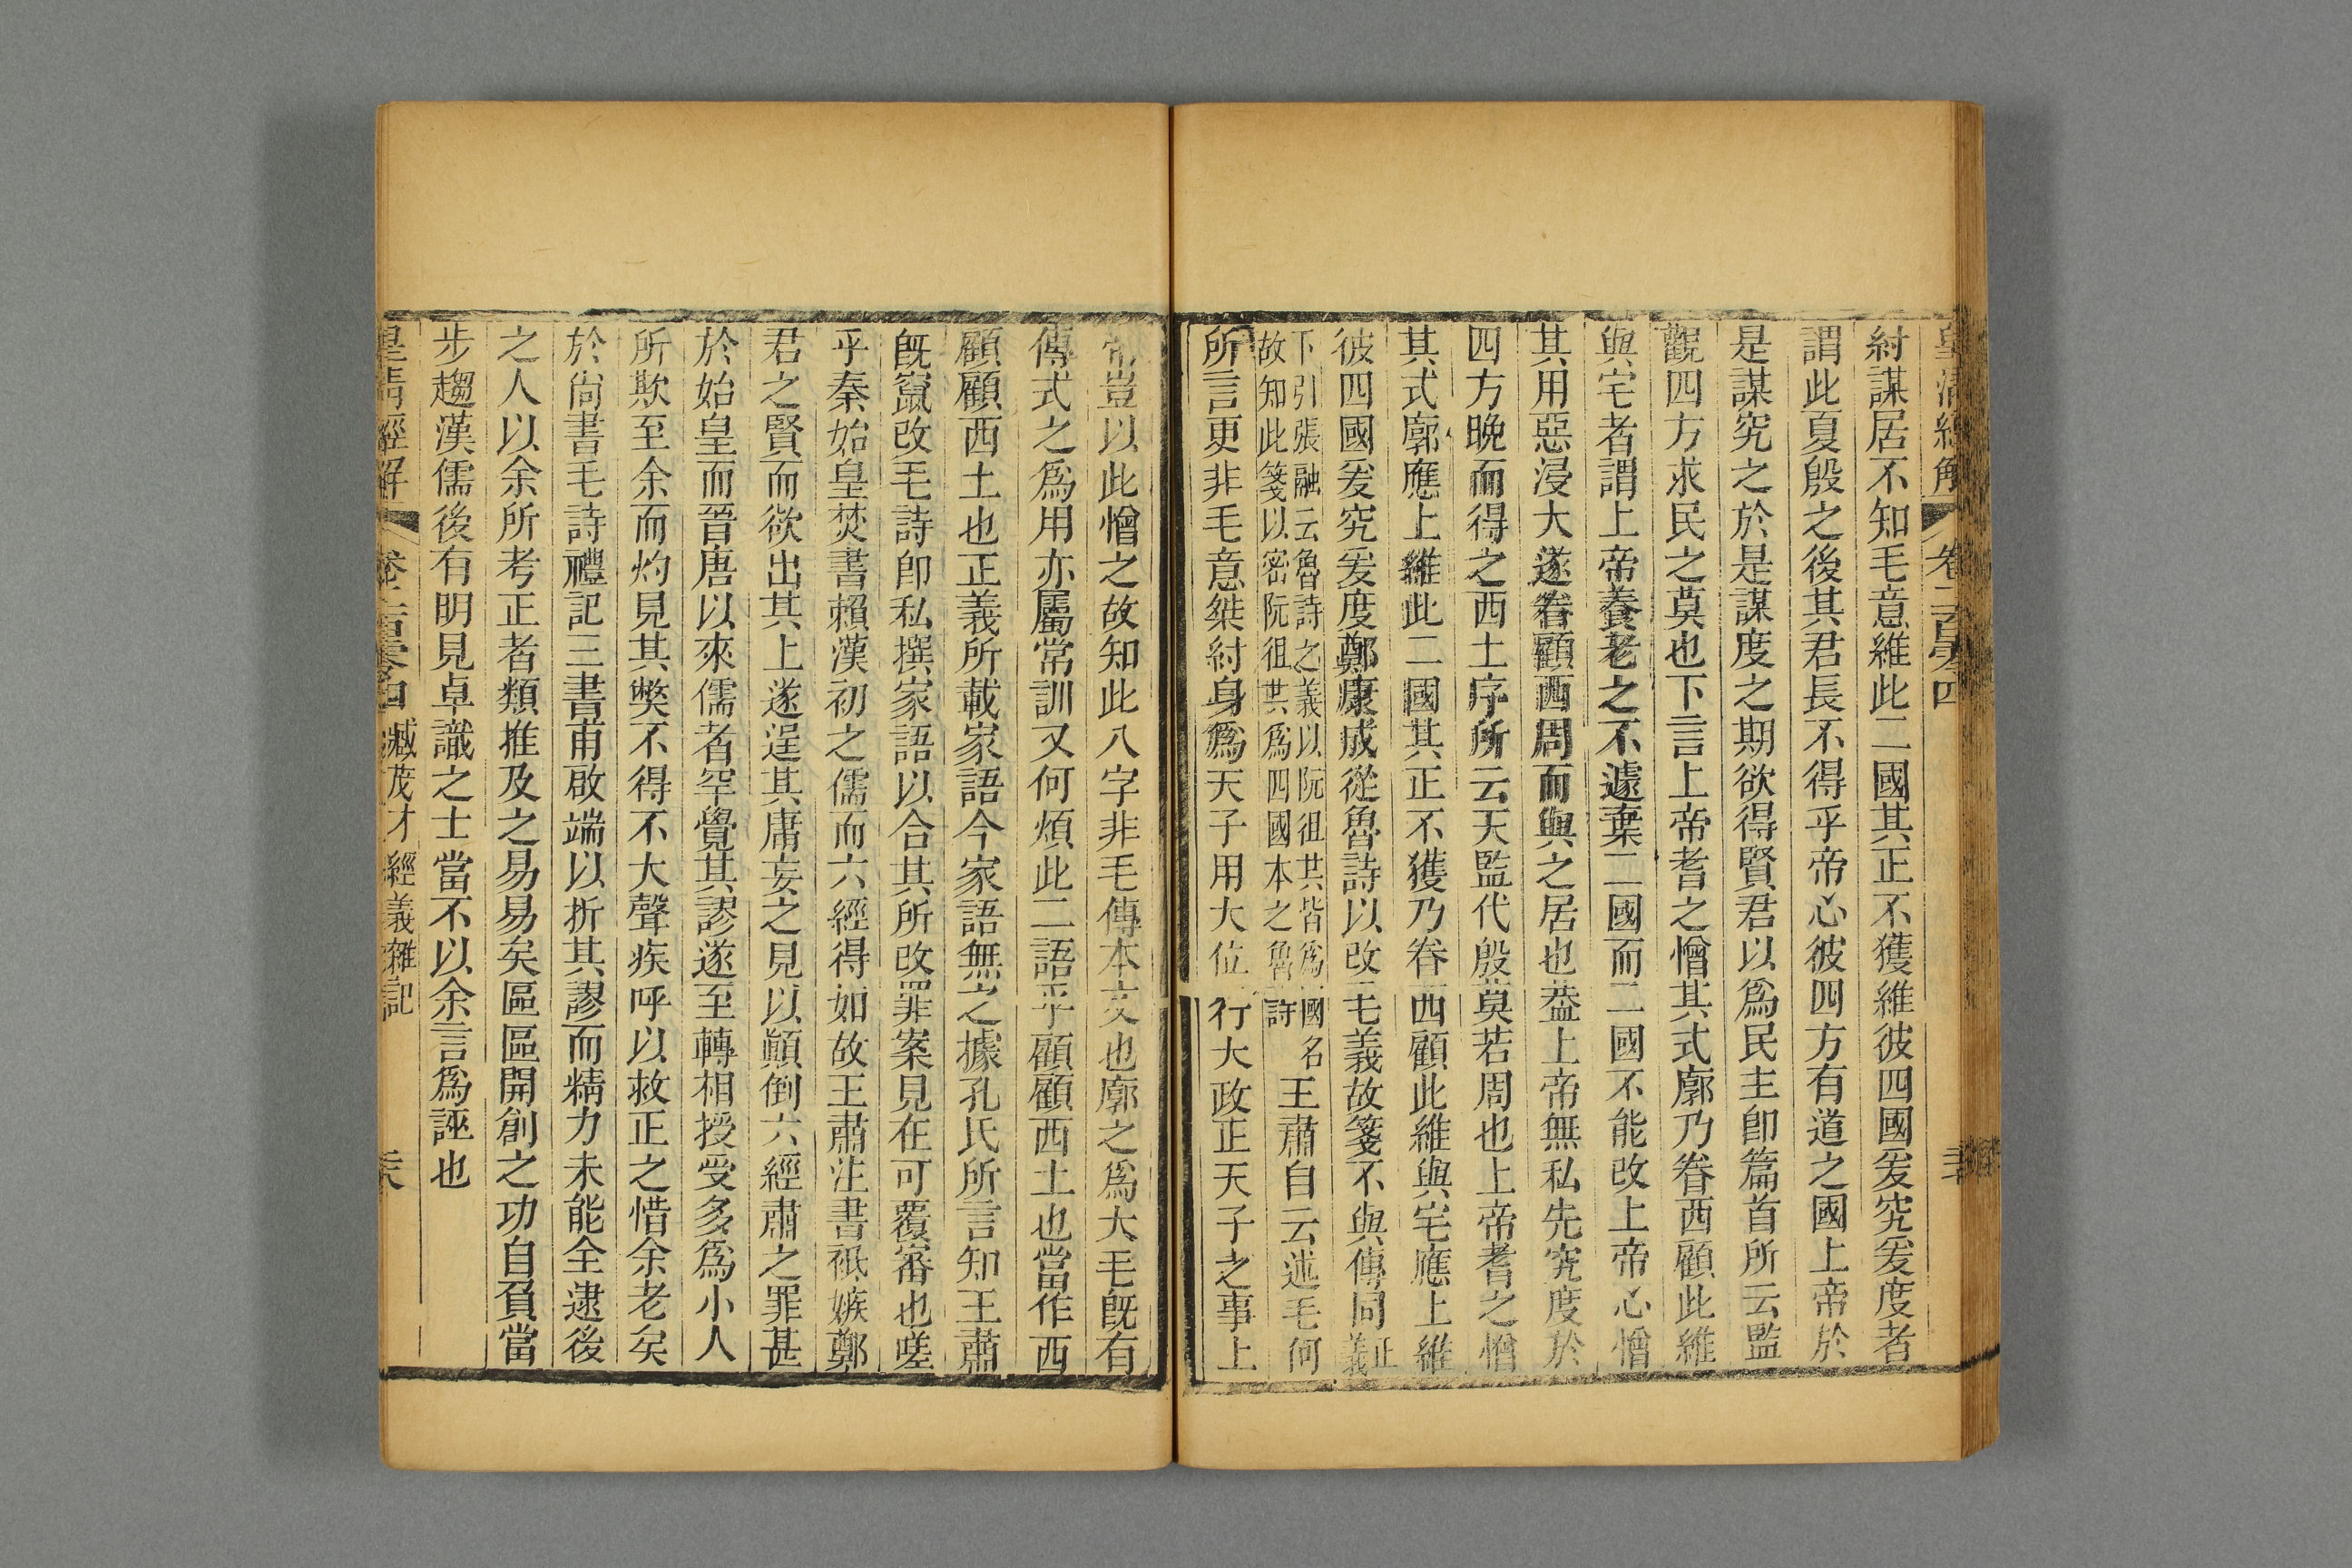 皇清經解 卷二百四
紂謀居不知毛意維此二國其正不獲維彼四國爰究爰度者
謂此夏殷之後其君長不得乎帝心彼四方有道之國上帝於
是謀究之於是謀度之期欲得賢君以爲民主卽篇首所云監
觀四方求民之莫也下言上帝耆之憎其式廓乃眷西顧此維
與宅者謂上帝養老之不遽棄二國而二國不能改上帝心憎
其用惡浸大遂眷顧西周而與之居也葢上帝無私先究度於
四方晚而得之西土序所云天監代殷莫若周也上帝耆之憎
其式廓應上維此二國其正不獲乃眷西顧此維與宅應上維
彼四國爰究爰度鄭康成從魯詩以改毛義故箋不與傳同正義
下引張融云魯詩之義以阮徂共皆爲國名
故知此箋以密阮徂共爲四國本之魯詩
王肅自云述毛何
所言更非毛意桀紂身爲天子用大位行大政正天子之事上
帝豈以此憎之故知此八字非毛傳本文也廓之爲大毛旣有
傳式之爲用亦屬常訓又何煩此二語乎顧顧西土也當作西
顧顧西土也正義所載家語今家語無之據孔氏所言知王肅
旣竄改毛詩卽私撰家語以合其所改罪案見在可覆審也嗟
乎秦始皇焚書賴漢初之儒而六經得如故王肅注書祇嫉鄭
君之賢而欲出其上遂逞其庸妄之見以顚倒六經肅之罪甚
於始皇而晉唐以來儒者罕覺其謬遂至轉相授受多爲小人
所欺至余而灼見其弊不得不大聲疾呼以救正之惜余老矣
於尙書毛詩禮記三書甫啟端以折其謬而精力未能全逮後
之人以余所考正者類推及之易易矣區區開創之功自負當
步趨漢儒後有明見卓識之士當不以余言爲誣也
皇清經解 卷二百零四 臧茂才經義雜記 六